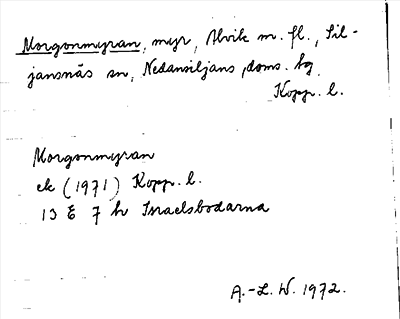 Morgonmyran, myr, Alvik m. fl., Sil-
jansnäs sn, Nedansiljans doms. hg
Kopp. l.
Morgonmyran
ek (1971) Kopp. l.
13 E 7 h Israelsbodarna
A.-L. W. 1972.